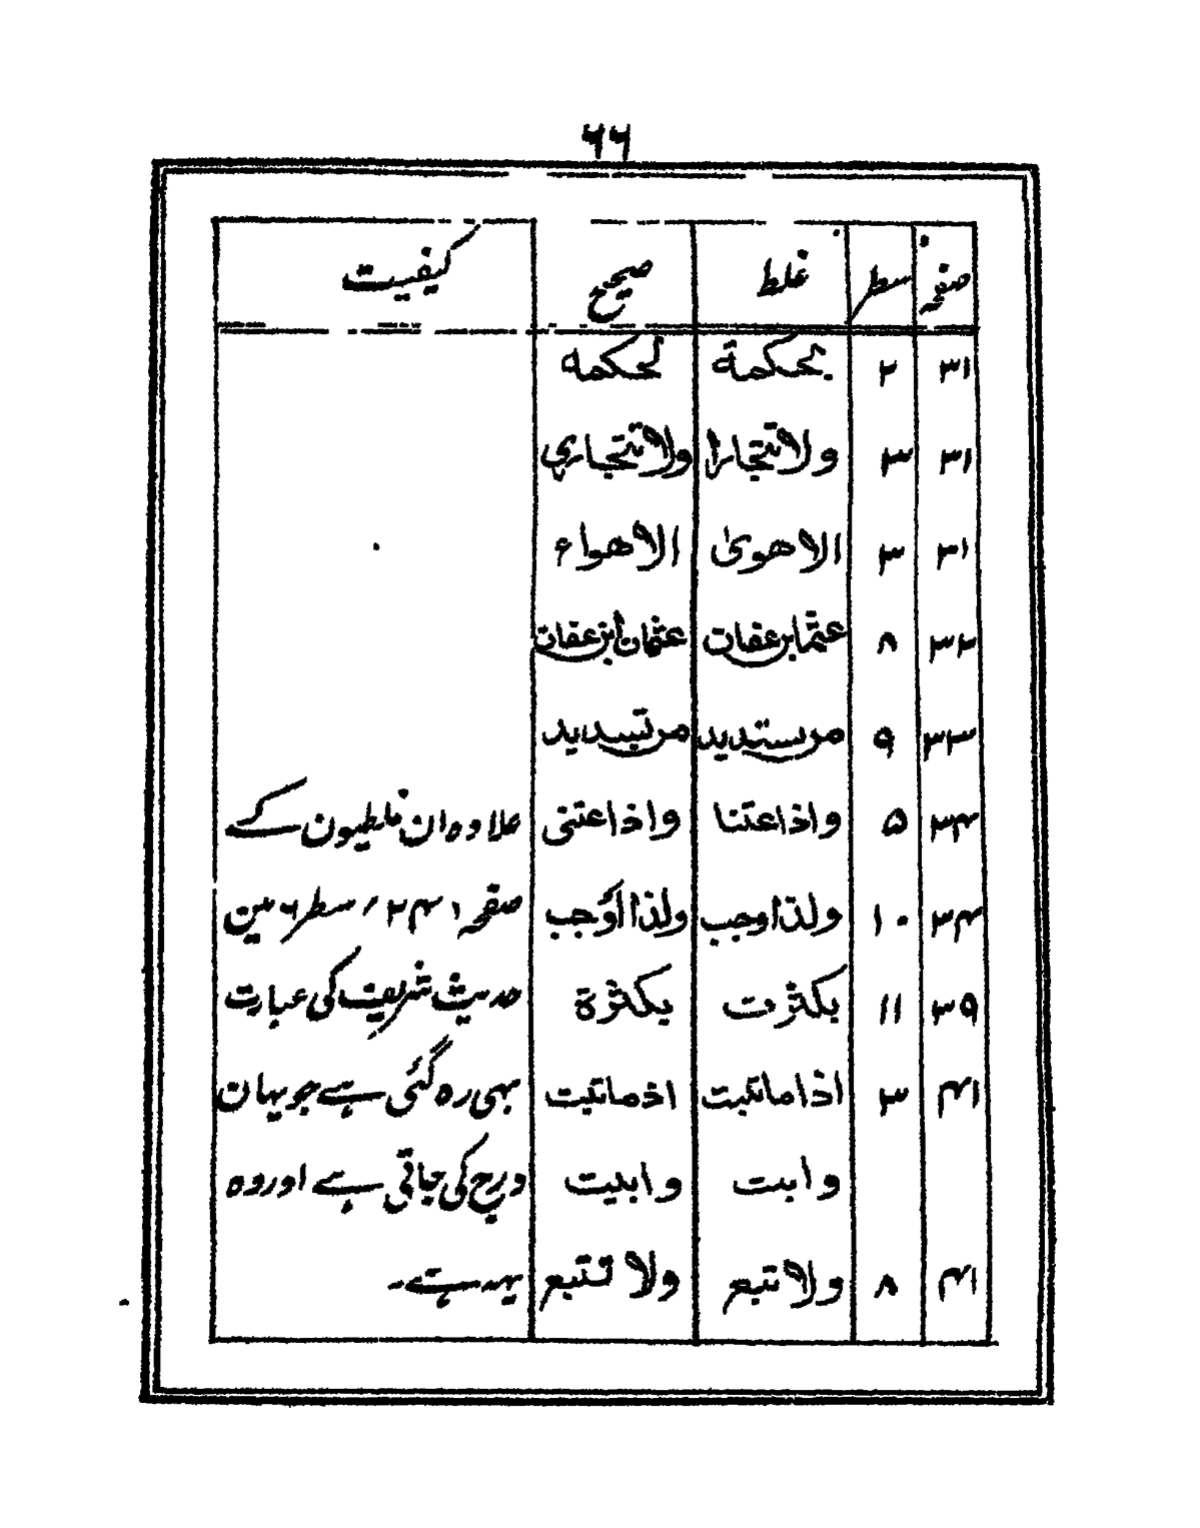 ۶۶
صفحہ سطر غلط صحیح کیفیت
۳۱ ۲ بحکمۃ لحکمہ
۳۱ ۳ ولا تتجارا ولا تتجاری
۳۱ ۳ الاھویٰ الاھواء
۳۲ ۸ عثما ابن عفان عثمان ابن عفان
۳۳ ۹ من یستدید من تسدید
۳۴ ۵ واذا عتنا واذا عتنی علاوہ ان غلطیون کے
۳۴ ۱۰ ولذا وجب ولذا اُوجب صفحہ ۲۴۱ / سطر ۶ مین
۳۹ ۱۱ بکثرت بکثرۃ حدیث شریف کی عبارت
۴۱ ۳ اذا ماتیت اذ ماتیت بھی رہ گئی ہے جو یہان
وابت وابیت درج کی جاتی ہے اور وہ
۴۱ ۸ ولا تبع ولا تتبع یہہ ہے۔